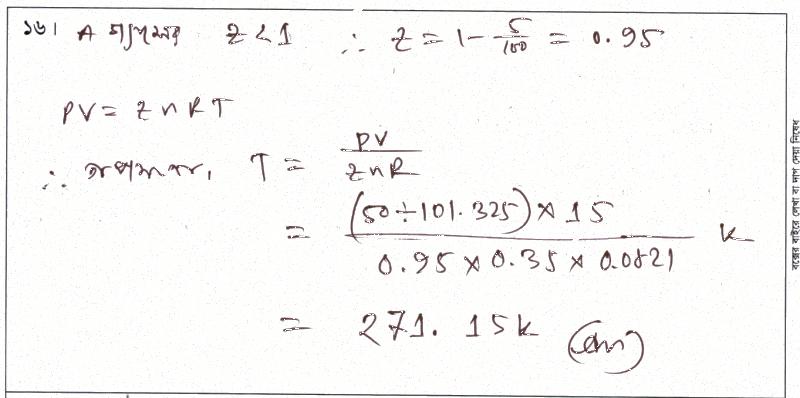 ১৬। A গ্যাসের Z<1 ∴ Z = 1 - 5/100 = 0.95
PV = ZnRT
∴ তাপমাত্রা, T = PV/ZnR
= (50÷101.325)×15 / 0.95×0.35×0.0821 K
= 271.15K (Ans)
বক্সের বাইরে লেখা বা দাগ দেয়া নিষেধ